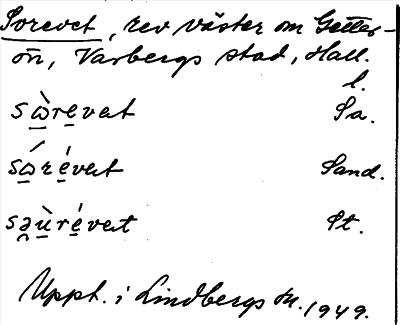 Sorevet, rev väster om Getter-
ön, Varbergs stad, Hall.
l.
sὼ̲re̲vat Sa.
sώ̲ré̲vat Sand.
sə̯ù̲ré̲vat St.
Uppt. i Lindbergs sn. 1949.